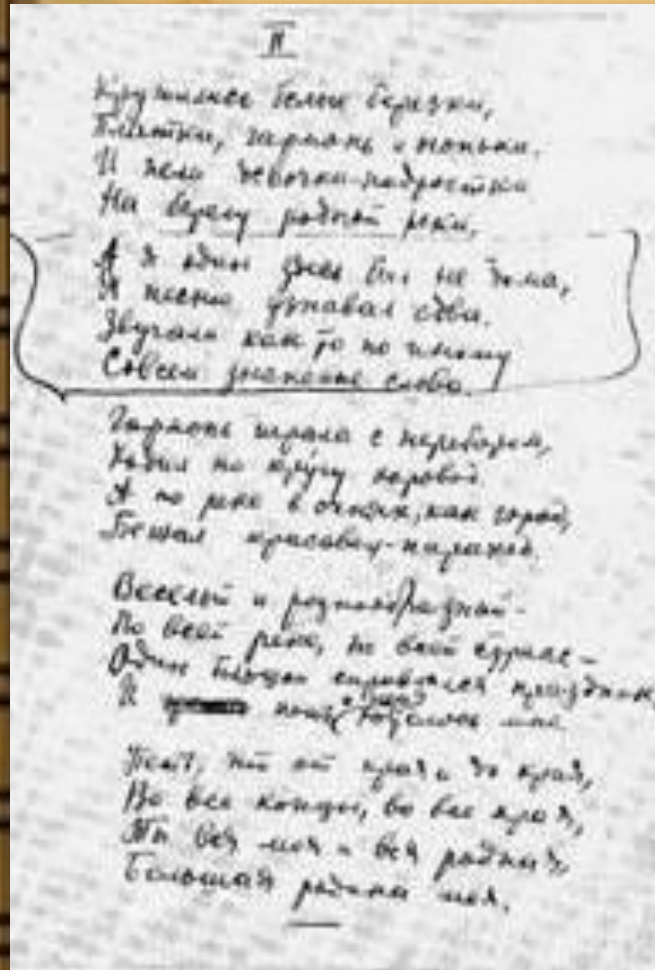 II
Кружились белые березки,
Платки, гармонь и огоньки.
И пели девочки-подростки
На берегу родной реки.
А я один здесь был не дома,
Я песню узнавал едва.
Звучали как то по иному
Совсем знакомые слова.
Гармонь играла с перебором,
Ходил по кругу хоровод
А по реке в огнях, как город,
Бежал красавец-пароход.
Веселый и разнообразный
По всей реке, по всей стране –
Один большой справлялся праздник,
И казалось мне
Нет, ты от края и до края,
Во все концы, во все края,
Ты вся моя и вся родная,
Большая родина моя.